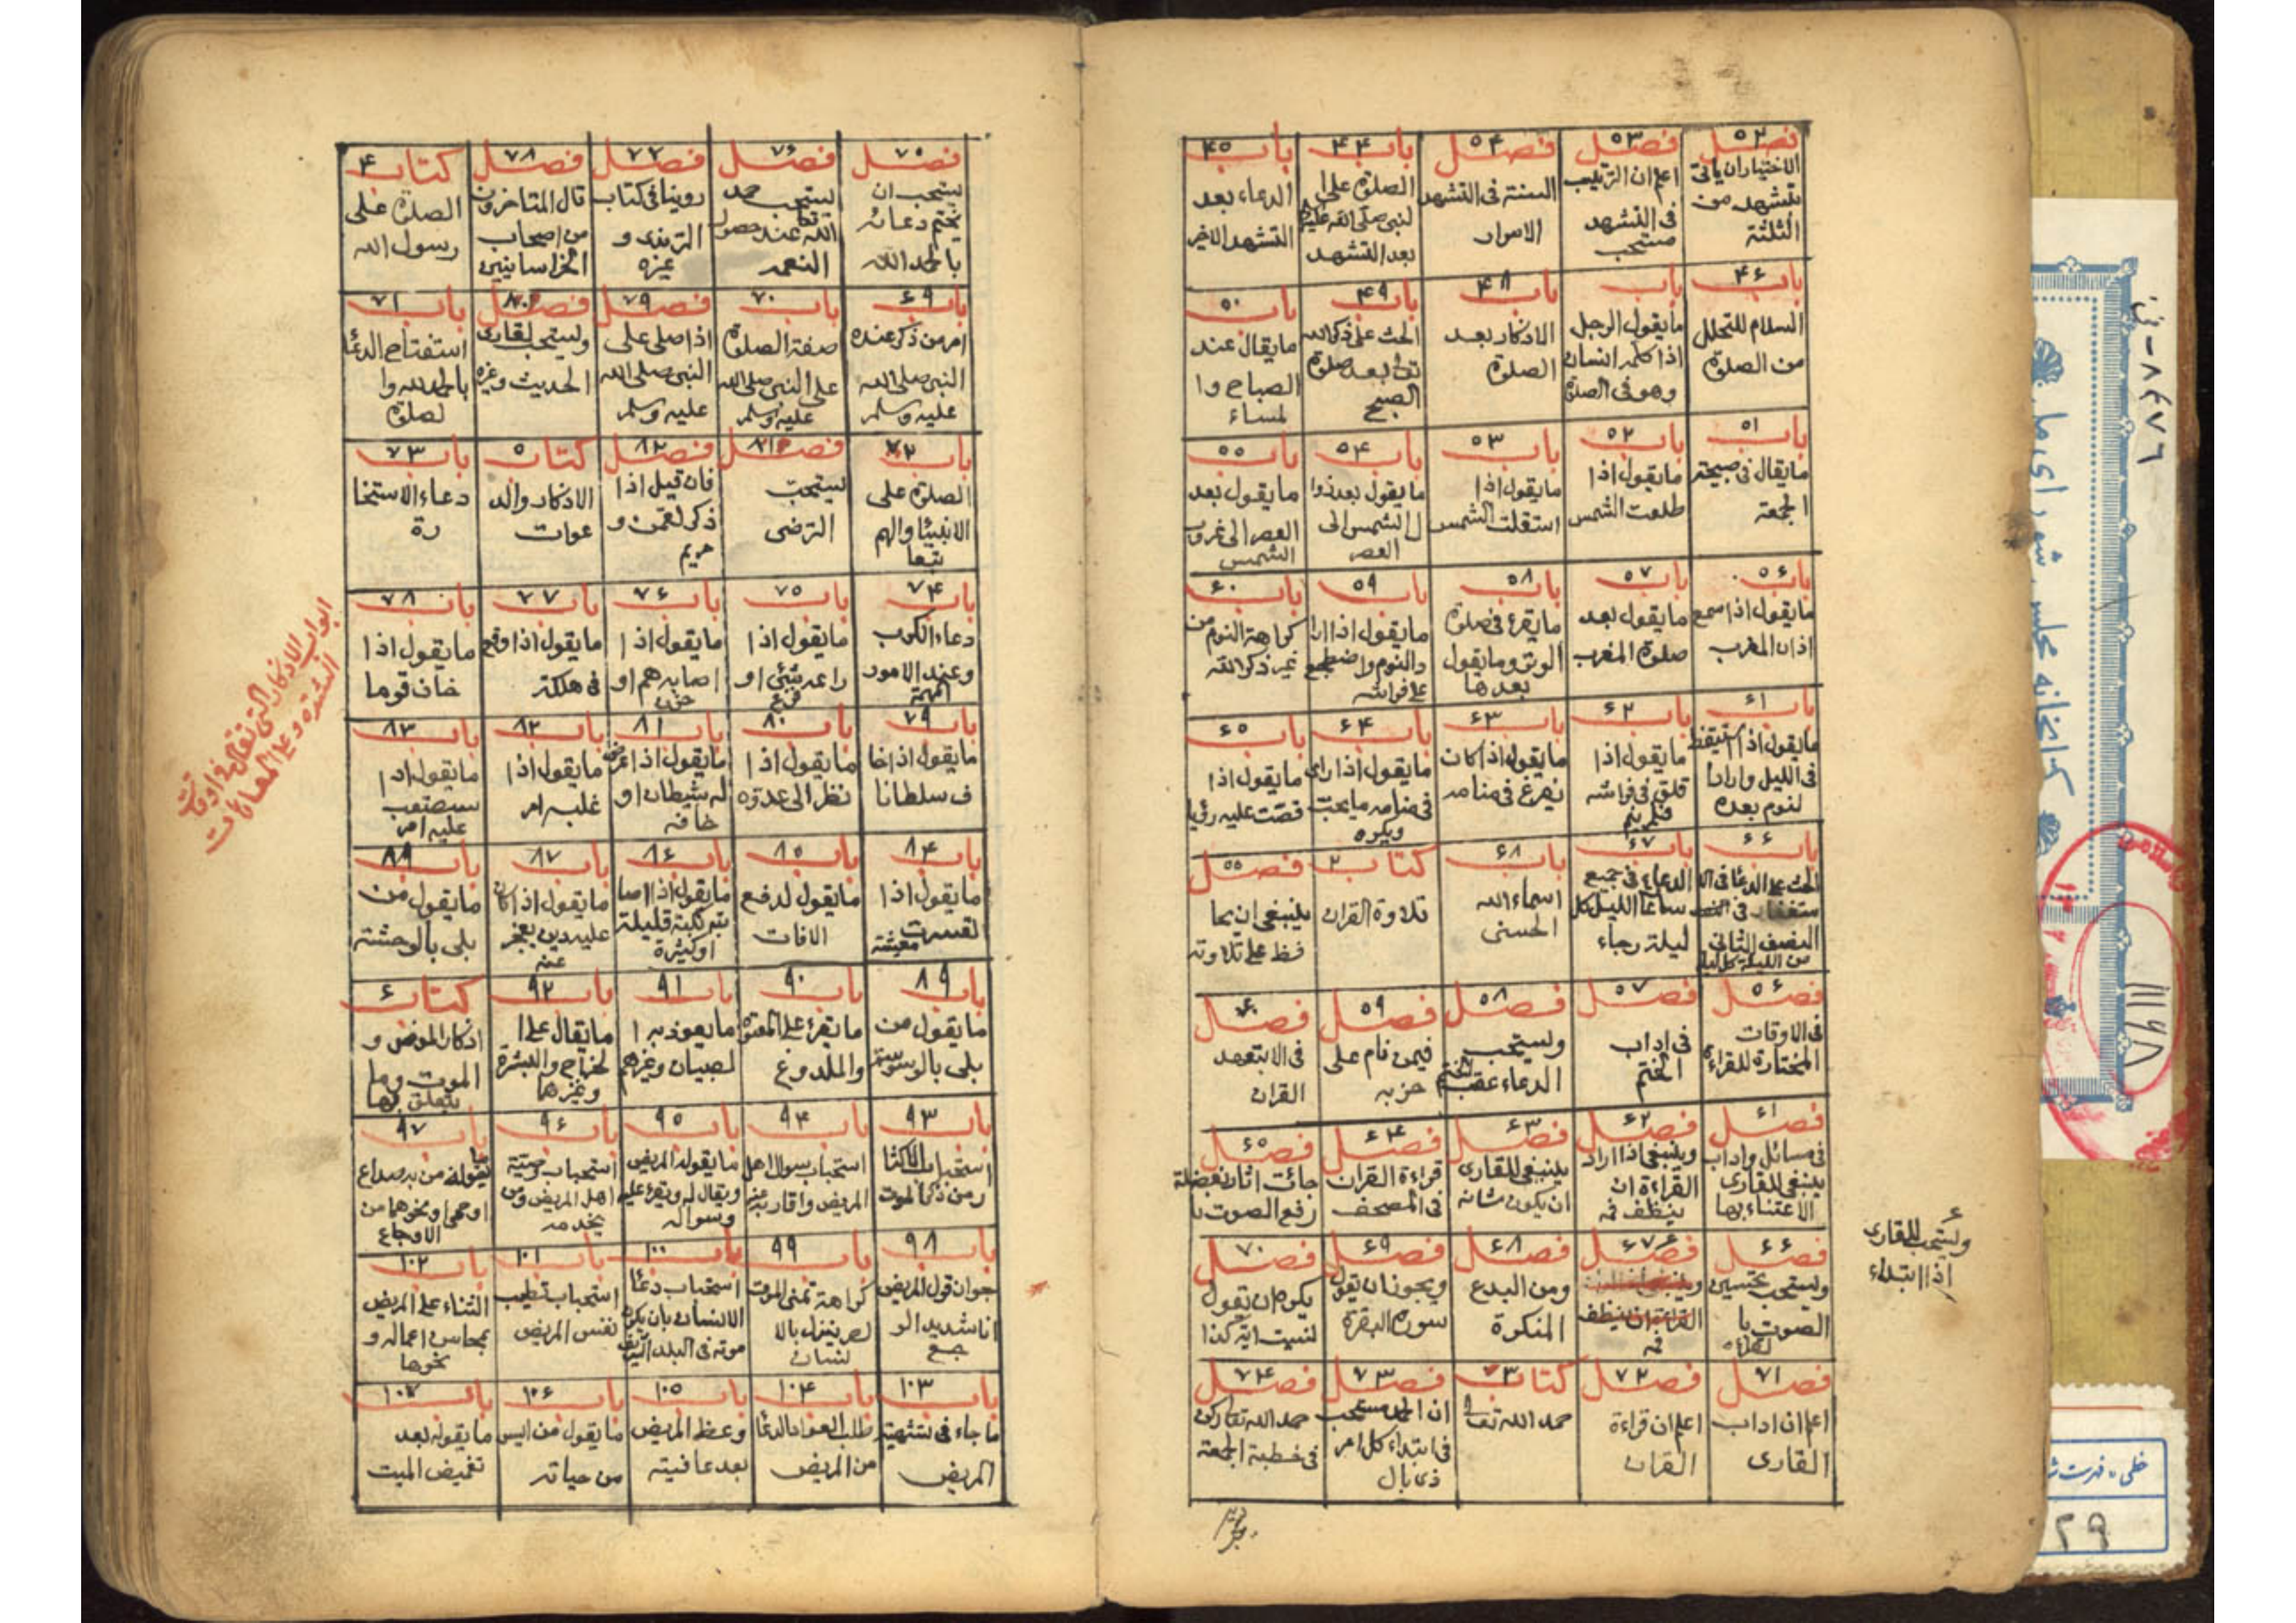 فصل ٥٢
الاختيار ان ياتى
بتشهد من
الثلثة
فصل ٥٣
اعلم ان الترتيب
فى التشهد
مستحب
فصل ٥۴
السنة فى التشهد
الاسرار
باب ۴۴
الصلوة على ا
لنبى صلى الله عليه
بعد التشهد
باب ۴٥
الدعاء بعد
التشهد الاخير
باب ۴۶
السلام للتحلل
من الصلوة
باب
ما يقول الرجل
اذا كلمه انسان
وهو فى الصلوة
باب ۴٨
الاذكار بعد
الصلوة
باب ۴٩
الحث على ذكر الله
تعالى بعد صلوة
الصبح
باب ٥٠
ما يقال عند
الصباح وا
لمساء
باب ٥١
ما يقال فى صبيحة
الجمعة
باب ٥٢
ما يقول اذا
طلعت الشمس
باب ٥٣
ما يقول اذا
استقلت الشمس
باب ٥۴
ما يقول بعد زوا
ل الشمس الى
العصر
باب ٥٥
ما يقول بعد
العصر الى غروب
الشمس
باب ٥۶
ما يقول اذا سمع
اذان المغرب
باب ٥٧
ما يقول بعد
صلوة المغرب
باب ٥٨
ما يقرء فى صلوة
الوتر وما يقول
بعدها
باب ٥٩
ما يقول اذا ارا
د النوم واضطجع
على فراشه
باب ۶٠
كراهة النوم من
غير ذكر الله
باب ۶١
ما يقول اذا استيقظ
فى الليل واراد ا
لنوم بعده
باب ۶٢
ما يقول اذا
قلق فى فراشه
فلم ينم
باب ۶٣
ما يقول اذا كان
يفزع فى منامه
باب ۶۴
ما يقول اذا راى
فى منامه ما يحب
ويكره
باب ۶٥
ما يقول اذا
قصت عليه رؤيا
باب ۶۶
الحث على الدعا فى الا
ستغفار فى
النصف الثانى
من الليل كل ليلة
باب ۶٧
الدعاء فى جميع
ساعا الليل كل
ليلة رجاء
باب ۶٨
اسماء الله
الحسنى
كتاب ٢
تلاوة القران
فصل ٥٥
ينبغى ان يحا
فظ على تلاوته
فصل ٥۶
فى الاوقات
المختارة للقراءة
فصل ٥٧
فى اداب
الختم
فصل ٥٨
ويستحب
الدعاء عقب الختم
فصل ٥٩
فيمن نام على
حزبه
فصل ۶٠
فى الا بتعهد
القران
فصل ۶١
فى مسائل واداب
ينبغى للقارى
الاعتناء بها
فصل ۶٢
وينبغى اذا اراد
القراءة ان
ينظف فمه
فصل ۶٣
ينبغى للقارى
ان يكون شانه
فصل ۶۴
قراءة القران
فى المصحف
فصل ۶٥
جائت اثار بفضلة
رفع الصوت با
فصل ۶۶
ويستحب تحسين
الصوت با
لقراءة
فصل ۶٧
القراءة ان ينظف
فمه
فصل ۶٨
ومن البدع
المنكرة
فصل ۶٩
ويجوز ان يقول
سورة البقرة
فصل ٧٠
يكره ان يقول
لنسيت اية كذا
ويستحب للقارى
اذا ابتداء
فصل ٧١
اعلم ان اداب
القارى
فصل ٧٢
اعلم ان قراءة
القران
كتاب ٣
حمد الله تعالى
فصل ٧٣
ان الحمد مستحب
فى ابتداء كل امر
ذى بال
فصل ٧۴
حمد الله تعا ركن
فى خطبة الجمعة
فصل ٧٥
يستحب ان
يختم دعائه
بالحمد الله
فصل ٧۶
يستحب حمد
الله تعا عند حصول
النعمه
فصل ٧٧
روينا فى كتاب
الترمذى و
غيره
فصل ٧٨
قال المتاخرون
من اصحاب
الخراسانيين
كتاب ۴
الصلوة على
رسول الله
باب ۶٩
امر من ذكر عنده
النبى صلى الله
عليه وسلم
باب ٧٠
صفة الصلوة
على النبى صلى الله
عليه وسلم
فصل ٧٩
اذا صلى على
النبى صلى الله
عليه وسلم
فصل ٨٠
ويستحب لقارى
الحديث وغيره
باب ٧١
استفتاح الدعا
بالحمد لله وا
لصلوة
باب ٧٢
الصلوة على
الانبيا والهم
تبعا
فصل ٨١
يستحب
الترضى
فصل ٨٢
فان قيل اذا
ذكر لقمن و
مريم
كتاب ٥
الاذكار والد
عوات
باب ٧٣
دعاء الاستخا
رة
باب ٧۴
دعاء الكرب
وعند الامور
المهمة
باب ٧٥
ما يقول اذا
راعه شئ او
فزع
باب ٧۶
ما يقول اذا
اصابه هم او
حزن
باب ٧٧
ما يقول اذا وقع
فى هلكة
باب ٧٨
ما يقول اذا
خاف قوما
ابواب الاذكار التى تقال فى اوقات
الشدة وعلى العاهات
باب ٧٩
ما يقول اذا خا
ف سلطانا
باب ٨٠
ما يقول اذا
نظر الى عدوه
باب ٨١
ما يقول اذا عرض
له شيطان او
خافه
باب ٨٢
ما يقول اذا
غلبه امر
باب ٨٣
ما يقول اذا
استصعب
عليه امر
باب ٨۴
ما يقول اذا
تعسرت
معيشته
باب ٨٥
ما يقول لدفع
الافات
باب ٨۶
ما يقول اذا اصا
بته نكبة قليلة
او كثيرة
باب ٨٧
ما يقول اذا كان
عليه دين يعجز
عنه
باب ٨٨
ما يقول من
بلى بالوحشة
باب ٨٩
ما يقول من
بلى بالوسوسة
باب ٩٠
ما يقرء على المعتوه
والملدوغ
باب ٩١
ما يعوذ به ا
لصبيان وغيرهم
باب ٩٢
ما يقال على ا
لخراج والبثرة
وغيرها
كتاب ۶
اذكار المرض و
الموت وما
يتعلق بها
باب ٩٣
استحباب الاكثا
ر من ذكر الموت
باب ٩۴
استحباب سوال اهل
المريض واقاربه عنه
باب ٩٥
ما يقوله المريض
ويقال له ويقرء عليه
وسواله
باب ٩۶
استحباب وصية
اهل المريض ومن
يخدمه
باب ٩٧
ما يقوله من به صداع
او حمى او نحوهما من
الاوجاع
باب ٩٨
جواز قول المريض
انا شديد الو
جع
باب ٩٩
كراهة تمنى الموت
لضر ينزل بالا
نسان
باب ١٠٠
استحباب دعا
الانسان بان يكون
موته فى البلد الشريف
باب ١٠١
استحباب تطييب
نفس المريض
باب ١٠٢
الثناء على المريض
بمحاسن اعماله و
نحوها
باب ١٠٣
ما جاء فى تشهية
المريض
باب ١٠۴
طلب العواد الدعا
من المريض
باب ١٠٥
وعظ المريض
بعد عافيته
باب ١٠۶
ما يقول من ايس
من حياته
باب ١٠٧
ما يقوله بعد
تغميض الميت
خطى - فهرست
٢٩